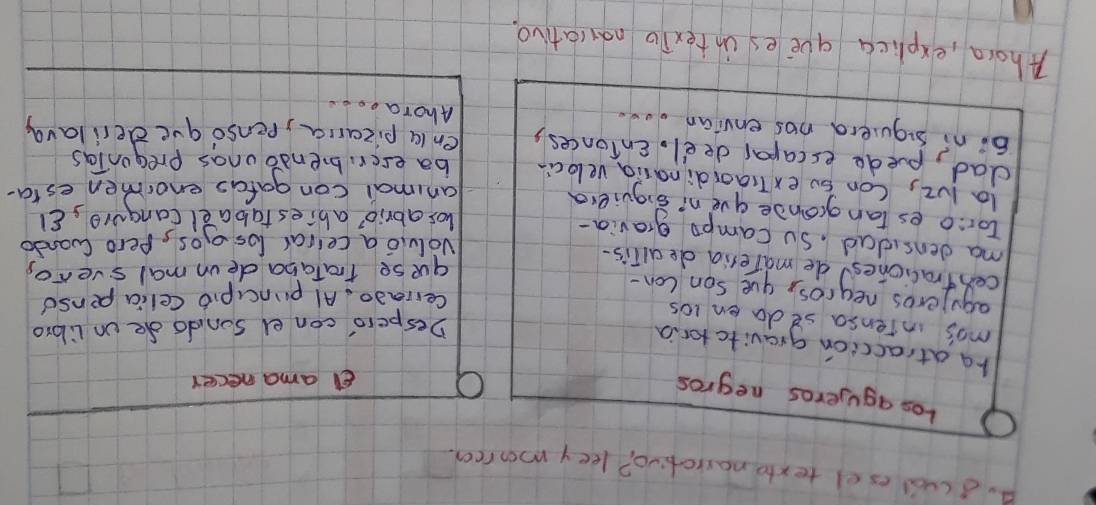 1. ¿cuál es el texto narrativo? lee y marca.
Los agujeros negros
La atracción gravitatoria
más intensa se da en los
agujeros negros, que son con-
centraciones de materia de altís-
ma densidad. Su campo gravia-
torio es tan grande que ni siquiera
la luz, con su extraordinaria veloci-
dad, puede escapar de él. Entonces,
si ni siquiera nos envían ....
El amanecer
Desperó con el sonido de un libro
cerrado. Al principió celia pensó
que se trataba de un mal sueño,
volvió a cerrar los ojos, pero cuando
los abrió ahí estaba el canguro, El
animal con gafas enormen esta-
ba escribiendo unas preguntas
en la pizarra, pensó que deliraba,
Ahora ....
Ahora, explica qué es un texto narrativo.